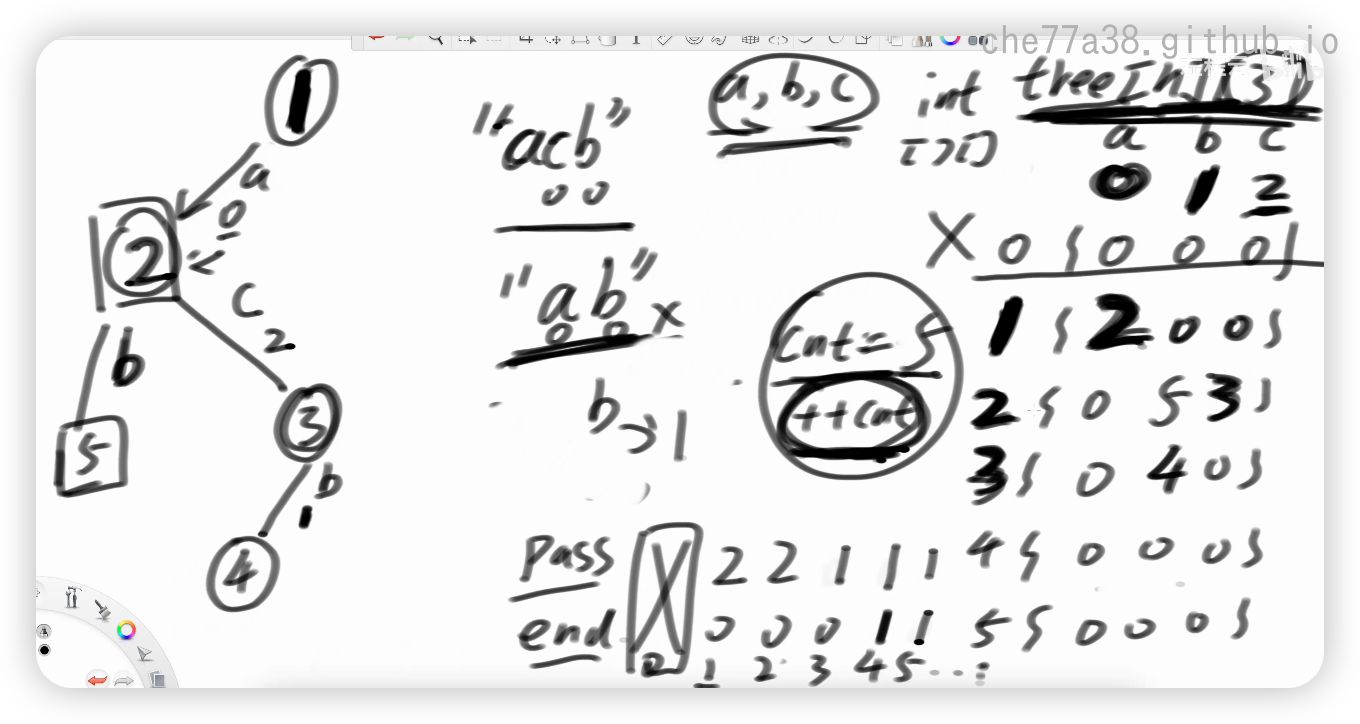 che77a38.github.io
1
a
0
2
c
2
b
5
3
b
1
4
"acb"
0 0
"ab"
0 0 x
b → 1
a, b, c
int tree[n][3]
[][]
a b c
0 1 2
X 0 { 0 0 0 }
1 { 2 0 0 }
2 { 0 5 3 }
3 { 0 4 0 }
4 { 0 0 0 }
5 { 0 0 0 }
cnt = 5
++cnt
pass X 2 2 1 1 1
end 0 0 0 1 1
0 1 2 3 4 5 ...